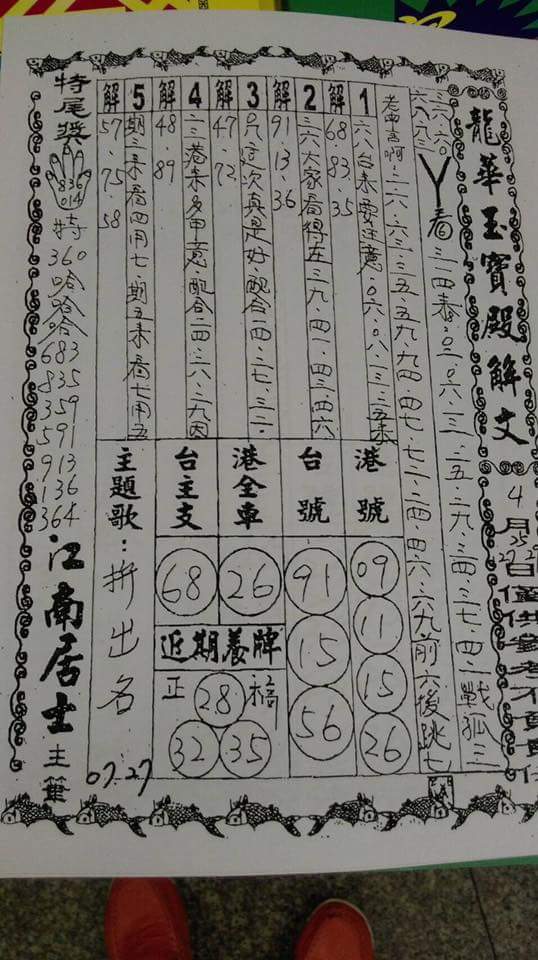 龍華玉寶殿解文
4月25 27 日僅供參考不負責任
三六.六〇
六八八三
丫看三一四泰.〇三.〇六.一三.二五.二九.三四.三七.四一戰孤三
老中言啊.二六.六三.三五.五九.九四.四七.七二.二四.四六.六九前六後跳七
1
六八台來要注意.〇六.〇八.一三.三五來
解
68.83.35
2
三六大家看得庄三九.四一.四三.四六
解
91.13.36
3
只言次真是好.配合二四.二七.三一
解
47.72
4
二三港來多甲意.配合二四.二六.二九因
解
48.89
5
期三來看四用七.期五來看七用五
解
57.75.58
港號
09
11
15
26
台號
91
15
56
港全車
26
台主支
68
近期養牌
正
28
32
35
主題歌：拼出名
07.27
特尾獎
836
014
特
360
哈哈哈
683
835
359
591
913
136
364
江南居士主筆